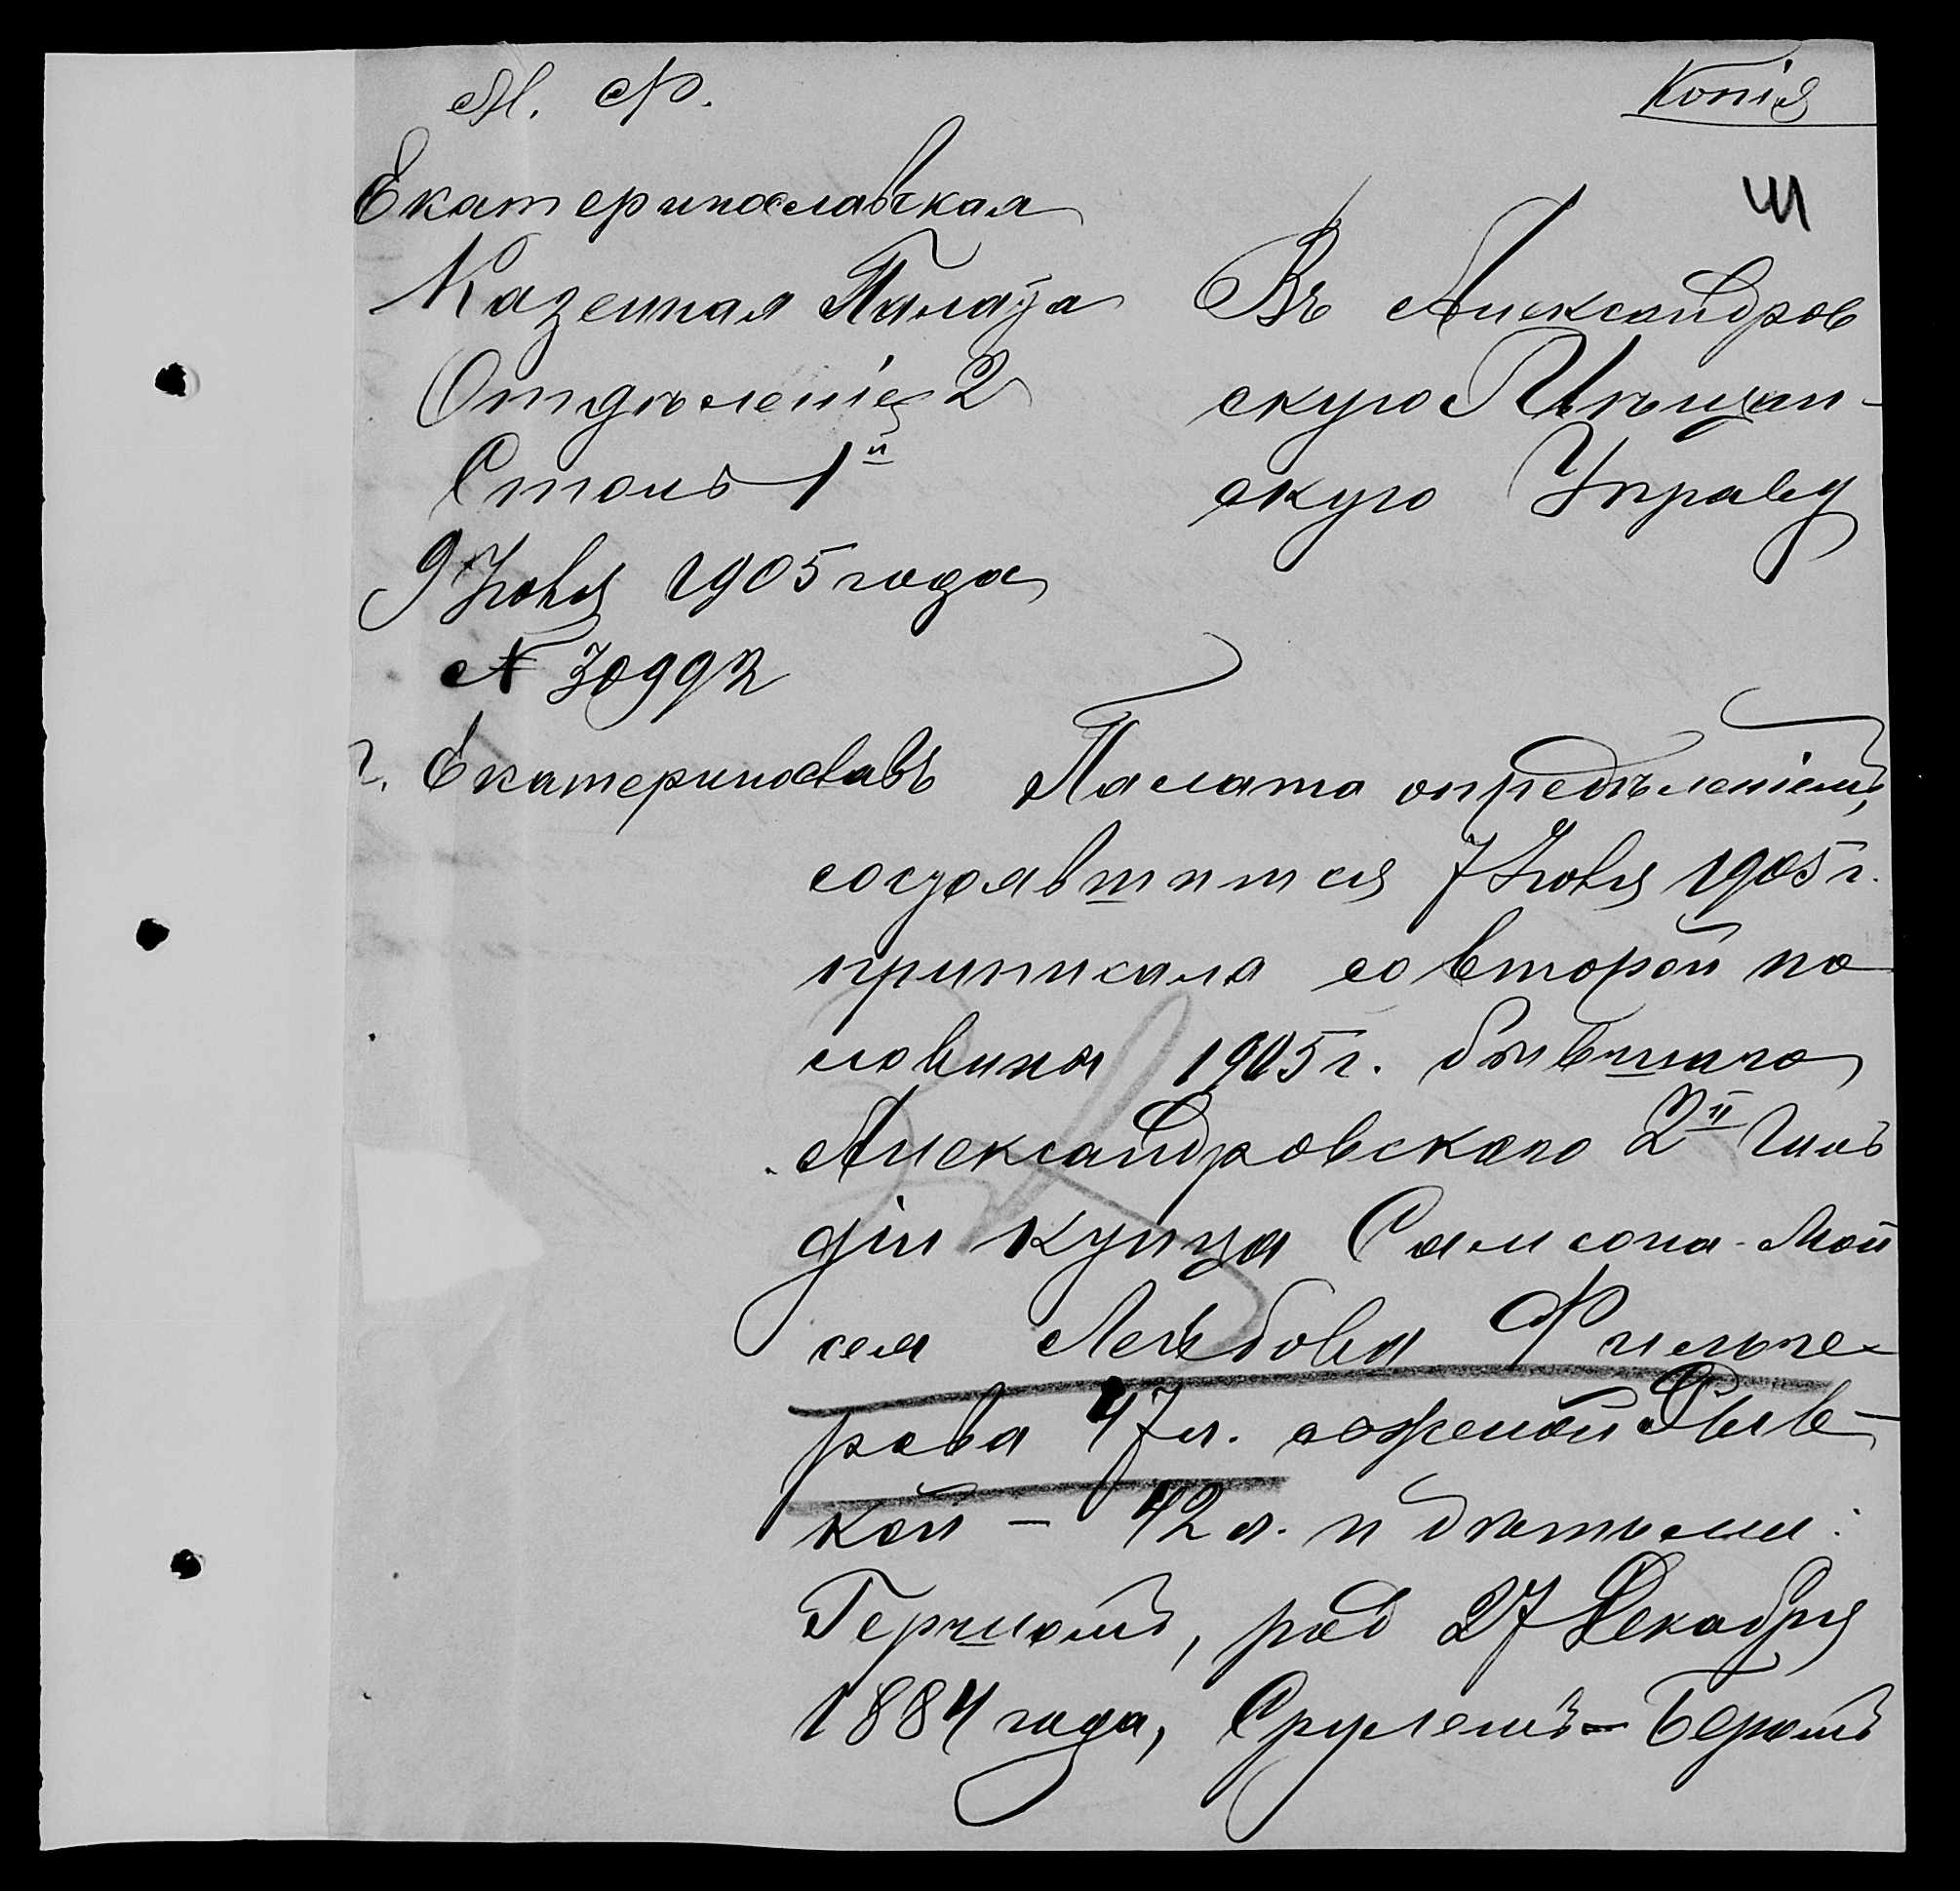 М. Ф.
Копія
Екатеринославская
Казенная Палата
Отдѣленіе 2
Столъ 1й
9 Іюля 1905 года
№ 30992
г. Екатеринославъ
Въ Александров
скую Мѣщан-
скую Управу
Палата опредѣленіемъ,
состоявшимся 7 Іюля 1905 г.
приписала со второй по
ловины 1905 г. бывшаго
Александровскаго 2й гиль
діи купца Самсона-Мой
сея Лейбова Фильге-
рова 47 л. съ женой Рыв-
кой - 42 л. и дѣтьми:
Гершомъ, род 27 Декабря
1884 года, Срулемъ-Беромъ